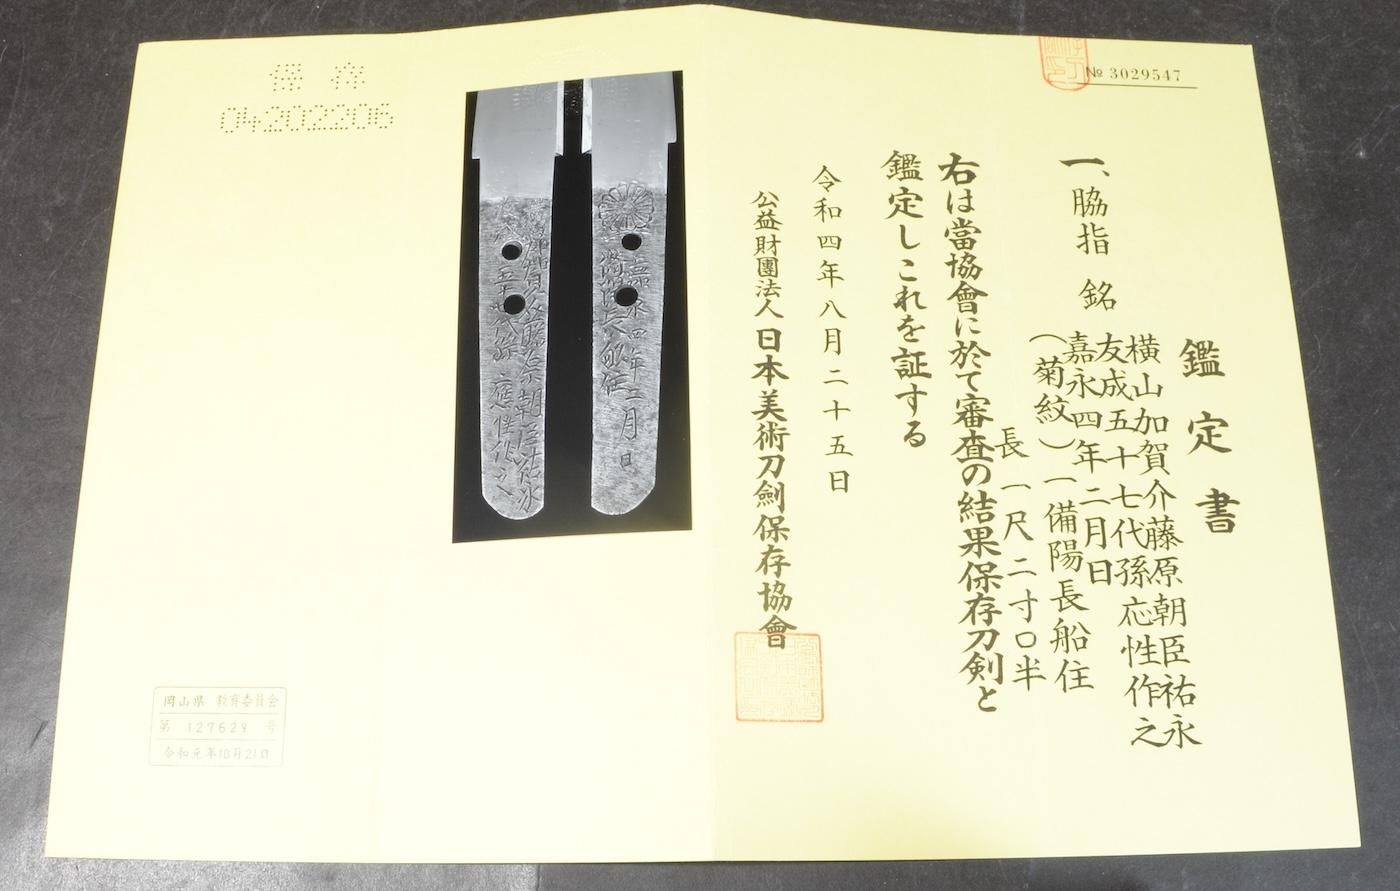 № 3029547
鑑定書
一、脇指 銘
横山加賀介藤原朝臣祐永
友成五十七代孫応性作之
嘉永四年二月日
(菊紋)一備陽長船住
長一尺二寸〇半
右は當協會に於て審査の結果保存刀剣と
鑑定しこれを証する
令和四年八月二十五日
公益財團法人日本美術刀劍保存協會
保存
04202206
岡山県 教育委員会
第 127629 号
令和元年10月21日